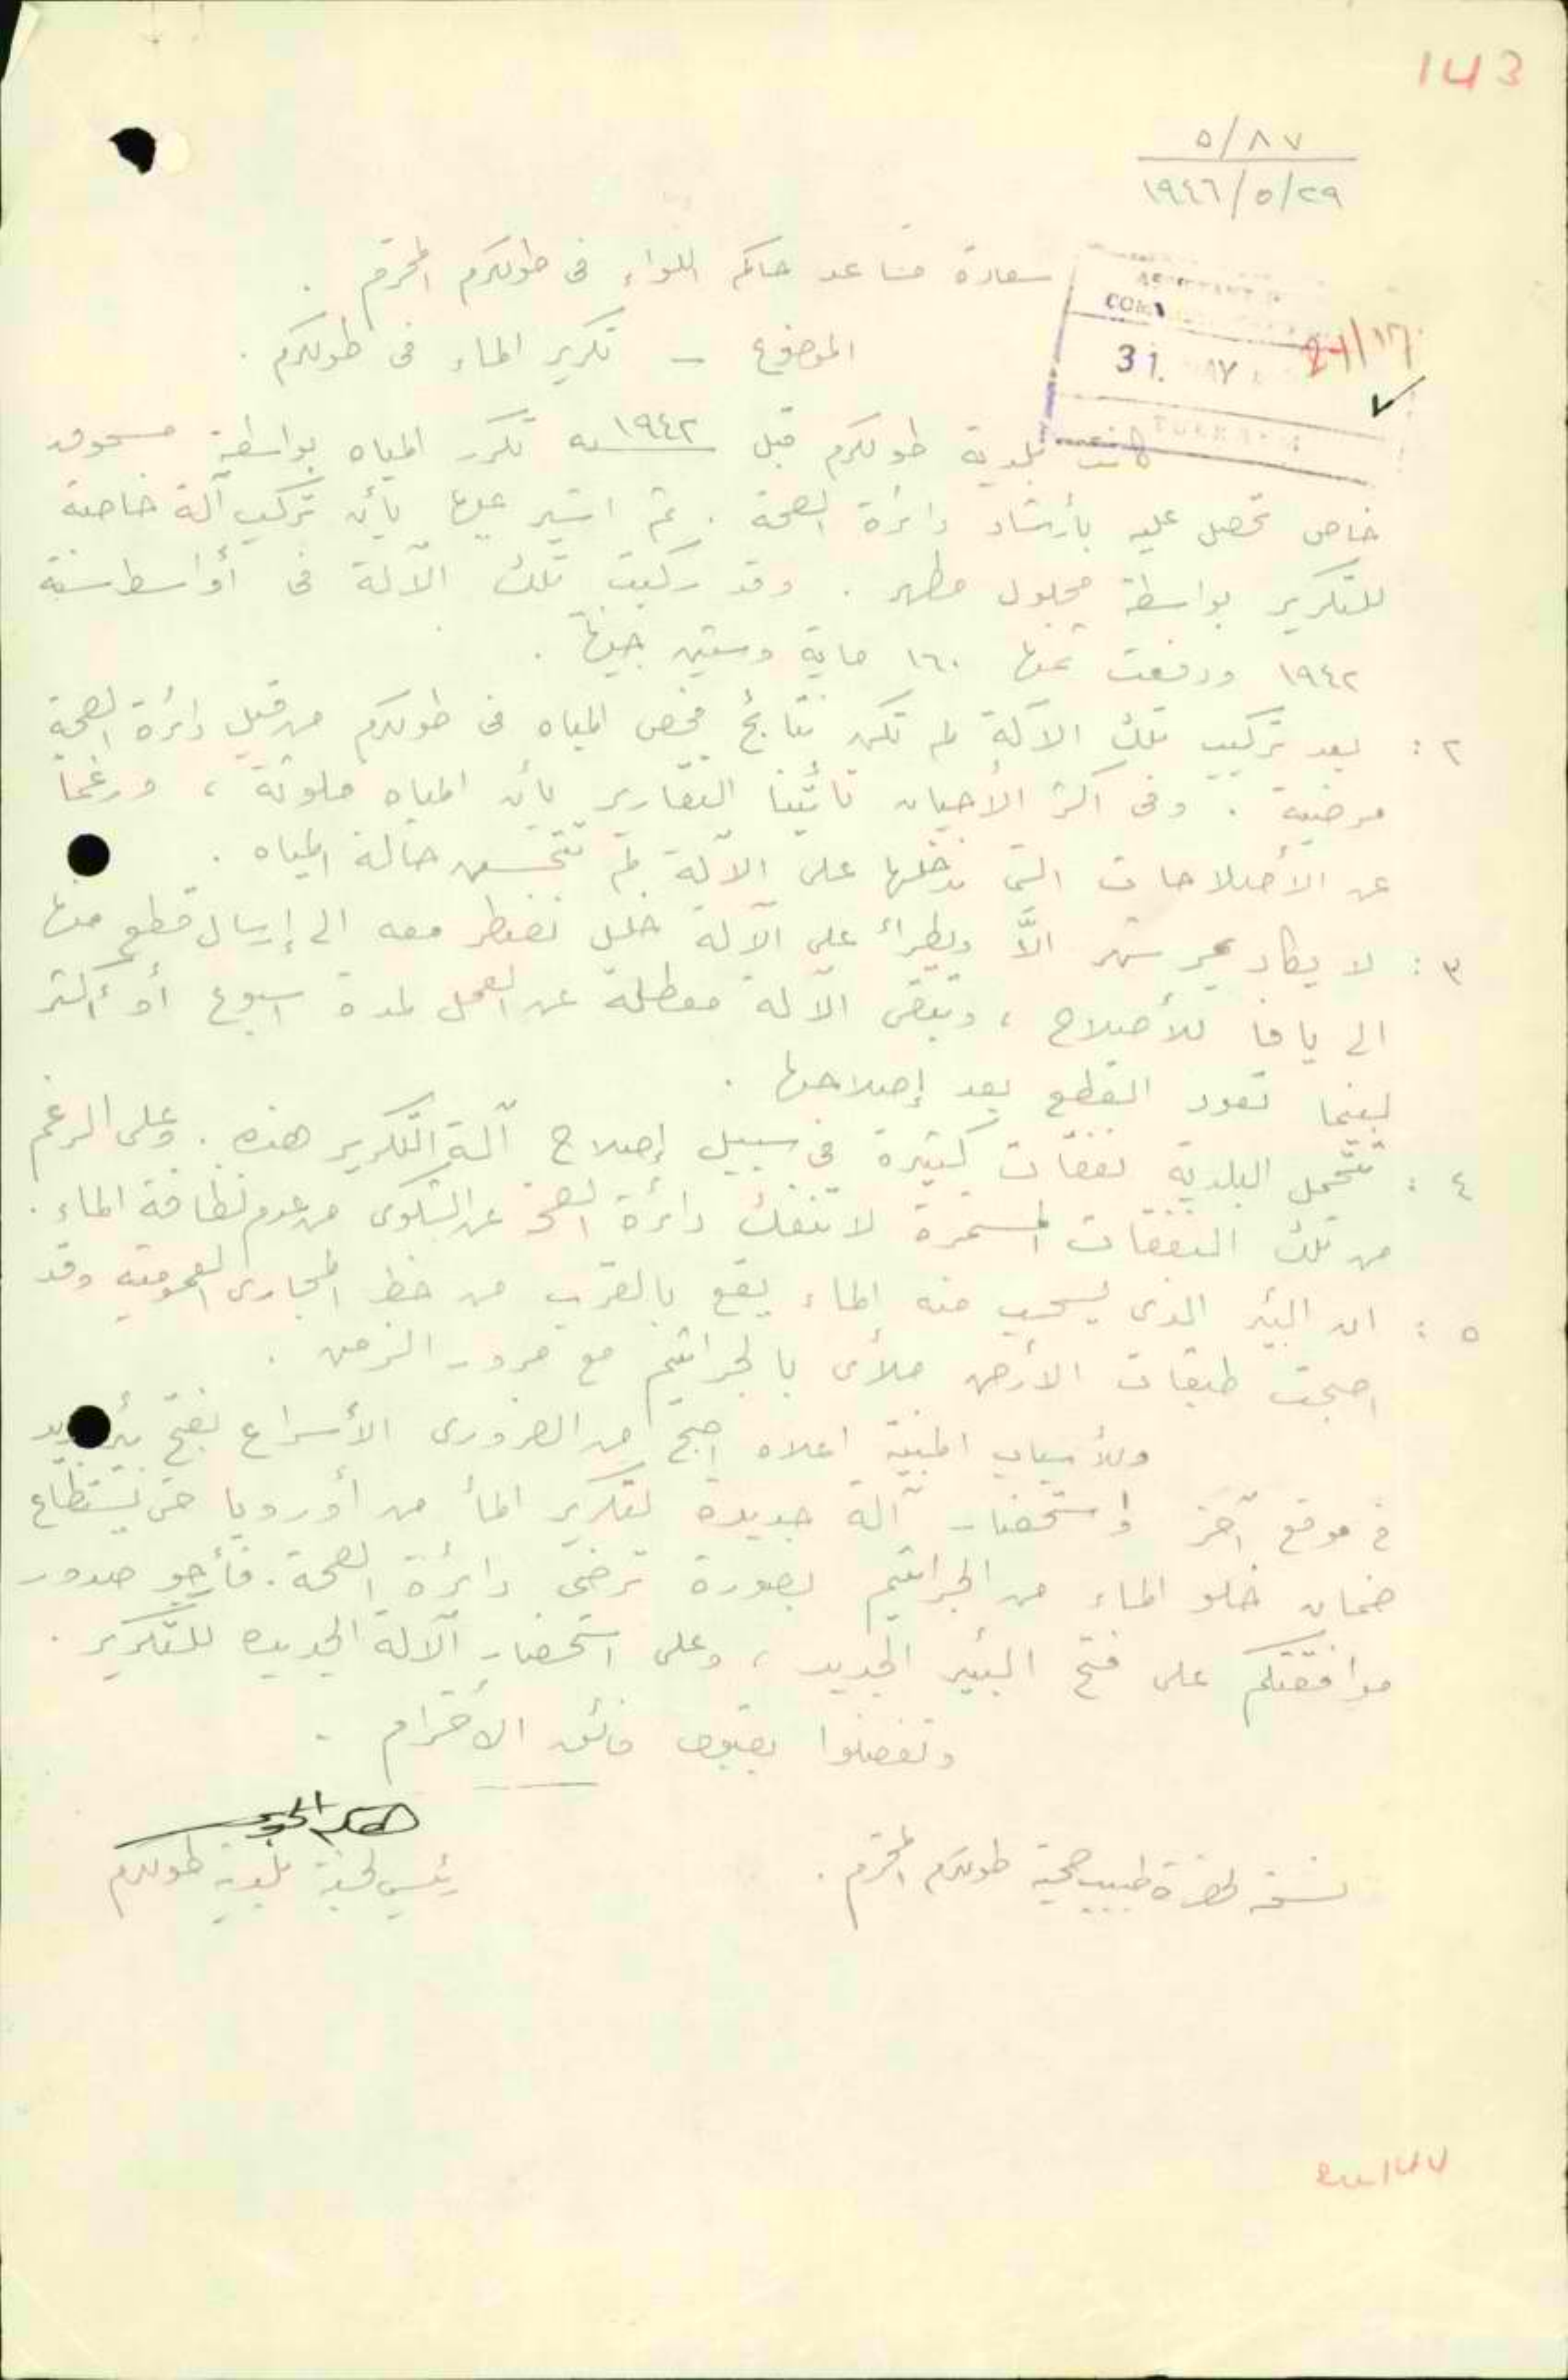 143
٥/٨٧
١٩٤٦/٥/٢٩
سعادة مساعد حاكم اللواء في طولكرم المحترم .
الموضوع - تكرير الماء في طولكرم .
31. MAY
24/17
كانت بلدية طولكرم قبل سنة ١٩٤٢ تكرر المياه بواسطة مسحوق
خاص تحصل عليه بأرشاد دائرة الصحة . ثم اشير عليها بأن تركب آلة خاصة
للتكرير بواسطة محلول مطهر . وقد ركبت تلك الآلة في أواسط سنة
١٩٤٢ ودفعت ثمنها ١٦٠ ماية وستين جنيهاً .
٢ : بعد تركيب تلك الآلة لم تكن نتائج فحص المياه في طولكرم من قبل دائرة الصحة
مرضية . وفي اكثر الأحيان تأتينا التقارير بأن المياه ملوثة ، ورغماً
عن الأصلاحات التي ندخلها على الآلة لم تتحسن حالة المياه .
٣ : لا يكاد يمر شهر الاَّ ويطرأ على الآلة خلل نضطر معه الى إرسال قطع منها
الى يافا للأصلاح ، وتبقى الآلة معطلة عن العمل لمدة اسبوع أو أكثر
لبينما تعود القطع بعد إصلاحها .
٤ : تتحمل البلدية نفقات كثيرة في سبيل إصلاح آلة التكرير هذه . وعلى الرغم
من تلك النفقات المستمرة لا تنفك دائرة الصحة عن الشكوى من عدم نظافة الماء .
٥ : ان البئر الذي يسحب منه الماء يقع بالقرب من خط المجارى العمومية وقد
اصبحت طبقات الأرض ملأى بالجراثيم مع مرور الزمن .
وللأسباب المبينة اعلاه اصبح من الضروري الأسراع بفتح بئر جديد
في موقع آخر واستحضار آلة جديدة لتكرير الماء من أوروبا حتى يستطاع
ضمان خلو الماء من الجراثيم بصورة ترضى دائرة الصحة . فأرجو صدور
موافقتكم على فتح البئير الجديد ، وعلى استحضار الآلة الجديدة للتكرير .
وتفضلوا بقبول فائق الأحترام .
رئيس لجنة بلدية طولكرم
نسخة لحضرة طبيب صحة طولكرم المحترم .